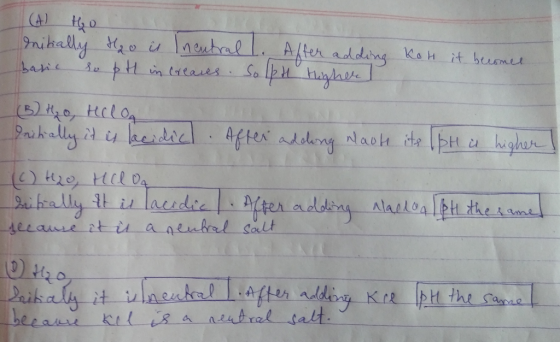 (A) H2O
Initially H2O is neutral. After adding KOH it becomes
basic so pH increases. So pH Higher
(B) H2O, HClO4
Initially it is acidic. After adding NaOH its pH is higher
(C) H2O, HClO4
Initially It is acidic. After adding NaClO4 pH the same
because it is a neutral salt
(D) H2O,
Initialy it is neutral. After adding KCl pH the same
because KCl is a neutral salt.